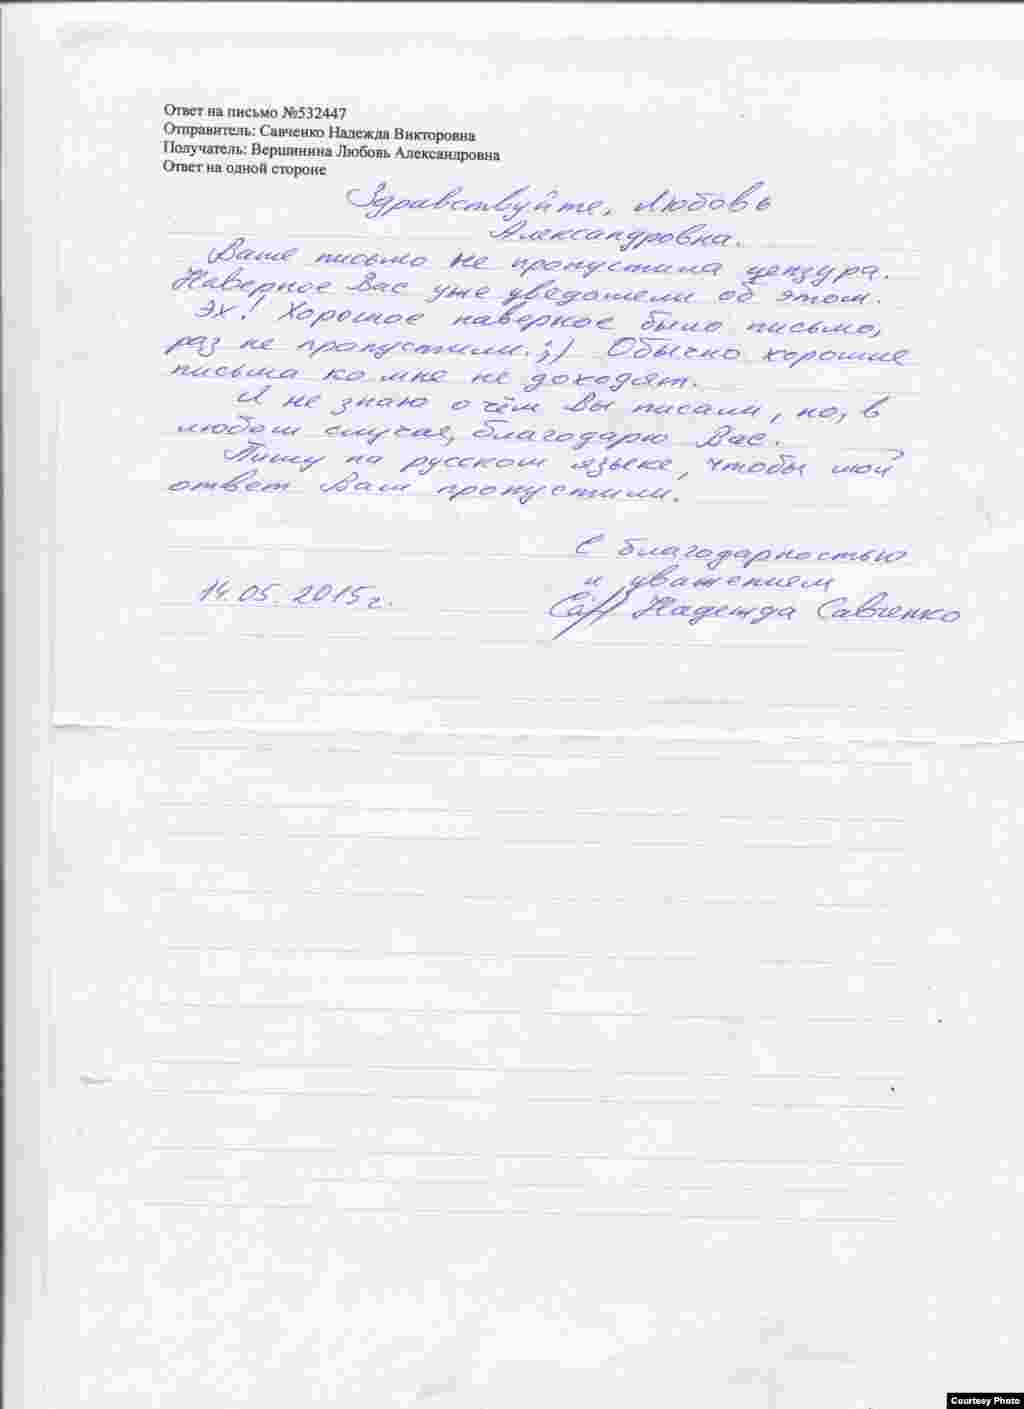 Ответ на письмо №532447
Отправитель: Савченко Надежда Викторовна
Получатель: Вершинина Любовь Александровна
Ответ на одной стороне
Здравствуйте, Любовь
Александровна.
Ваше письмо не пропустила цензура.
Наверное Вас уже уведомели об этом.
Эх! Хорошое наверное было письмо,
раз не пропустили. ;) Обычно хорошие
письма ко мне не доходят.
Я не знаю о чём Вы писали, но, в
любом случае, благодарю Вас.
Пишу на русском языке, чтобы мой
ответ Вам пропустили.
С благодарностью
и уважением
14.05.2015г. Надежда Савченко
Courtesy Photo